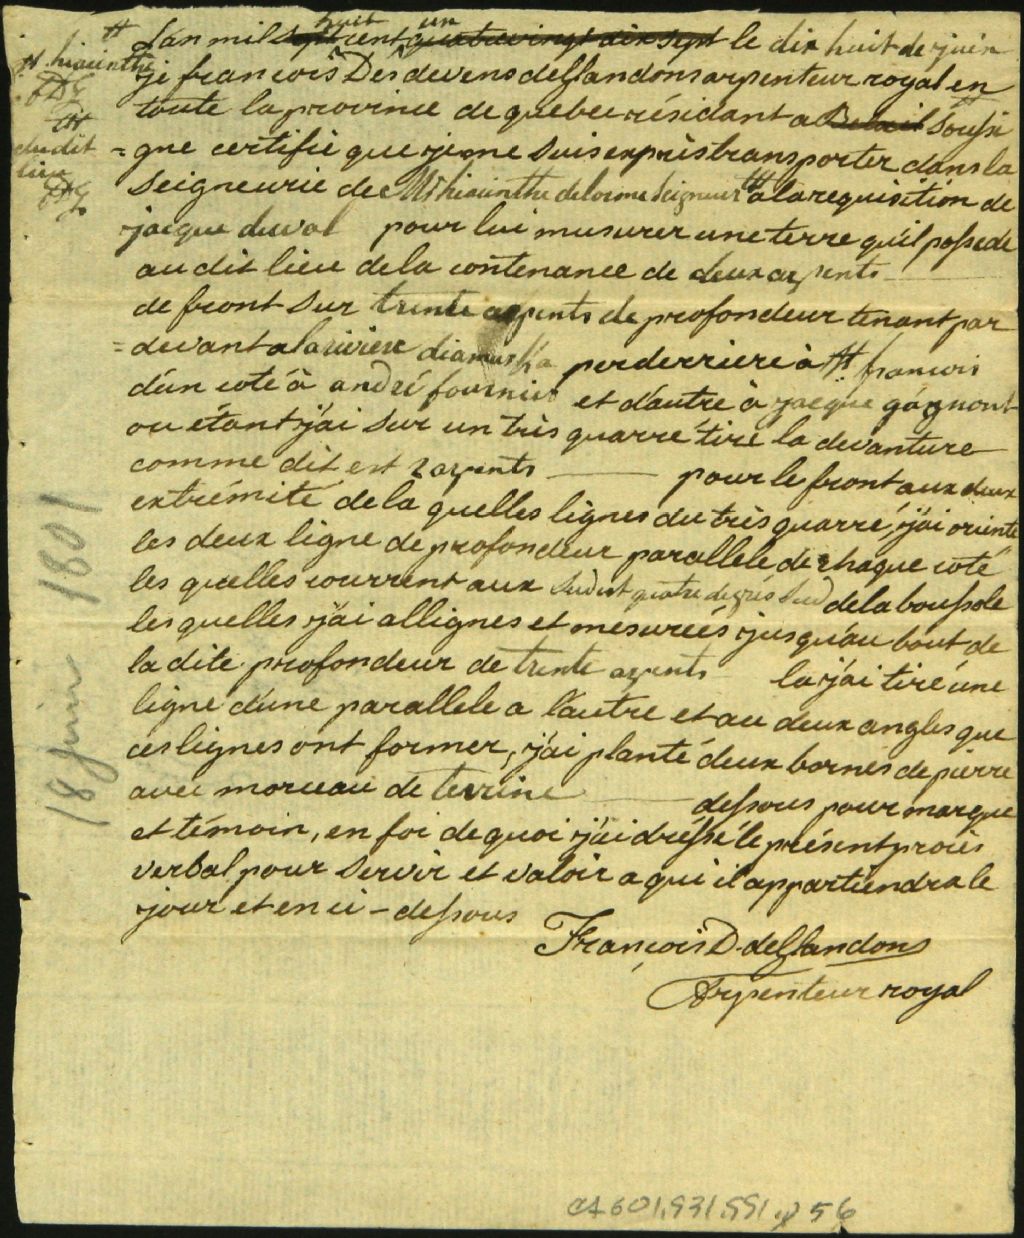 L'an mil sept huit cent quatre vingt dix sept un le dix huit de juin
je françois Des devens desglandons arpenteur royal en
toute la province de quebec résidant a Belœil # soussi
= gne certifie que je me suis exprès transporter dans la
seigneurie de Mr hiacinthe delorme seigneur # a la requisition de
jacque duval pour lui musurer une terre qu'il possede
au dit lieu de la contenance de deux arpents
de front sur trente arpents de profondeur tenant par
= devant a la rivière diamaska par derriere à st françois
d'un coté à andré fournier et d'autre à jacque gagnont
ou étant j'ai sur un très quarré tiré la devanture
comme dit est 2 arpents pour le front aux deux
extrémité de la quelles lignes du très quarré, j'ai orienté
les deux ligne de profondeur parallele de chaque coté
les quelles courrent aux sudest quatre degrés sud de la boussole
les quelles j'ai allignes et mesurées jusqu'au bout de
la dite profondeur de trente arpents la j'ai tiré une
ligne d'une parallele a l'autre et au deux angles que
ces lignes ont former, j'ai planté deux bornes de pierre
avec morceau de terrine dessous pour marque
et témoin, en foi de quoi j'ai dréssé le présent procès
verbal pour servir et valoir a qui il appartiendra le
jour et en ci - dessous
François D. desglandons
Arpenteur royal
# st hiacinthe
FDG
#
du dit
lieu
FDG
18 Juin 1801
CA 601,931,991,p 56